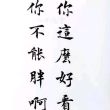 你這麼好看
你不能胖啊